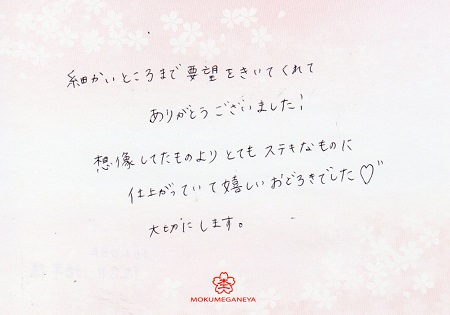 細かいところまで要望をきいてくれて
ありがとうございました!
想像してたものよりとてもステキなものに
仕上がっていて嬉しいおどろきでした♡"
大切にします。
MOKUMEGANEYA